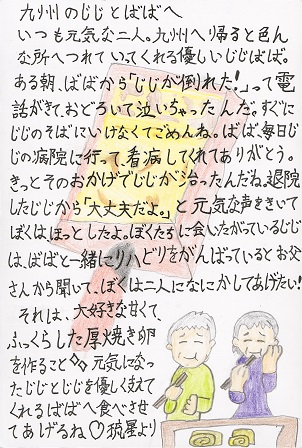 九州のじじとばばへ
いつも元気な二人。九州へ帰ると色ん
な所へつれていってくれる優しいじじばば。
ある朝、ばばから「じじが倒れた!」って電
話がきて、おどろいて泣いちゃったんだ。すぐに
じじのそばにいけなくてごめんね。ばば、毎日じ
じの病院に行って、看病してくれてありがとう。
きっとそのおかげでじじが治ったんだね。退院
したじじから「大丈夫だよ。」と元気な声をきいて
ぼくはほっとしたよ。ぼくたちに会いたがっているじじ
は、ばばと一緒にリハビリをがんばっているとお父
さんから聞いて、ぼくは二人になにかしてあげたい!
それは、大好きな甘くて、
ふっくらした厚焼き卵
を作ること◇◇元気になっ
たじじとじじを優しく支えて
くれるばばへ食べさせ
てあげるね♡琉星より